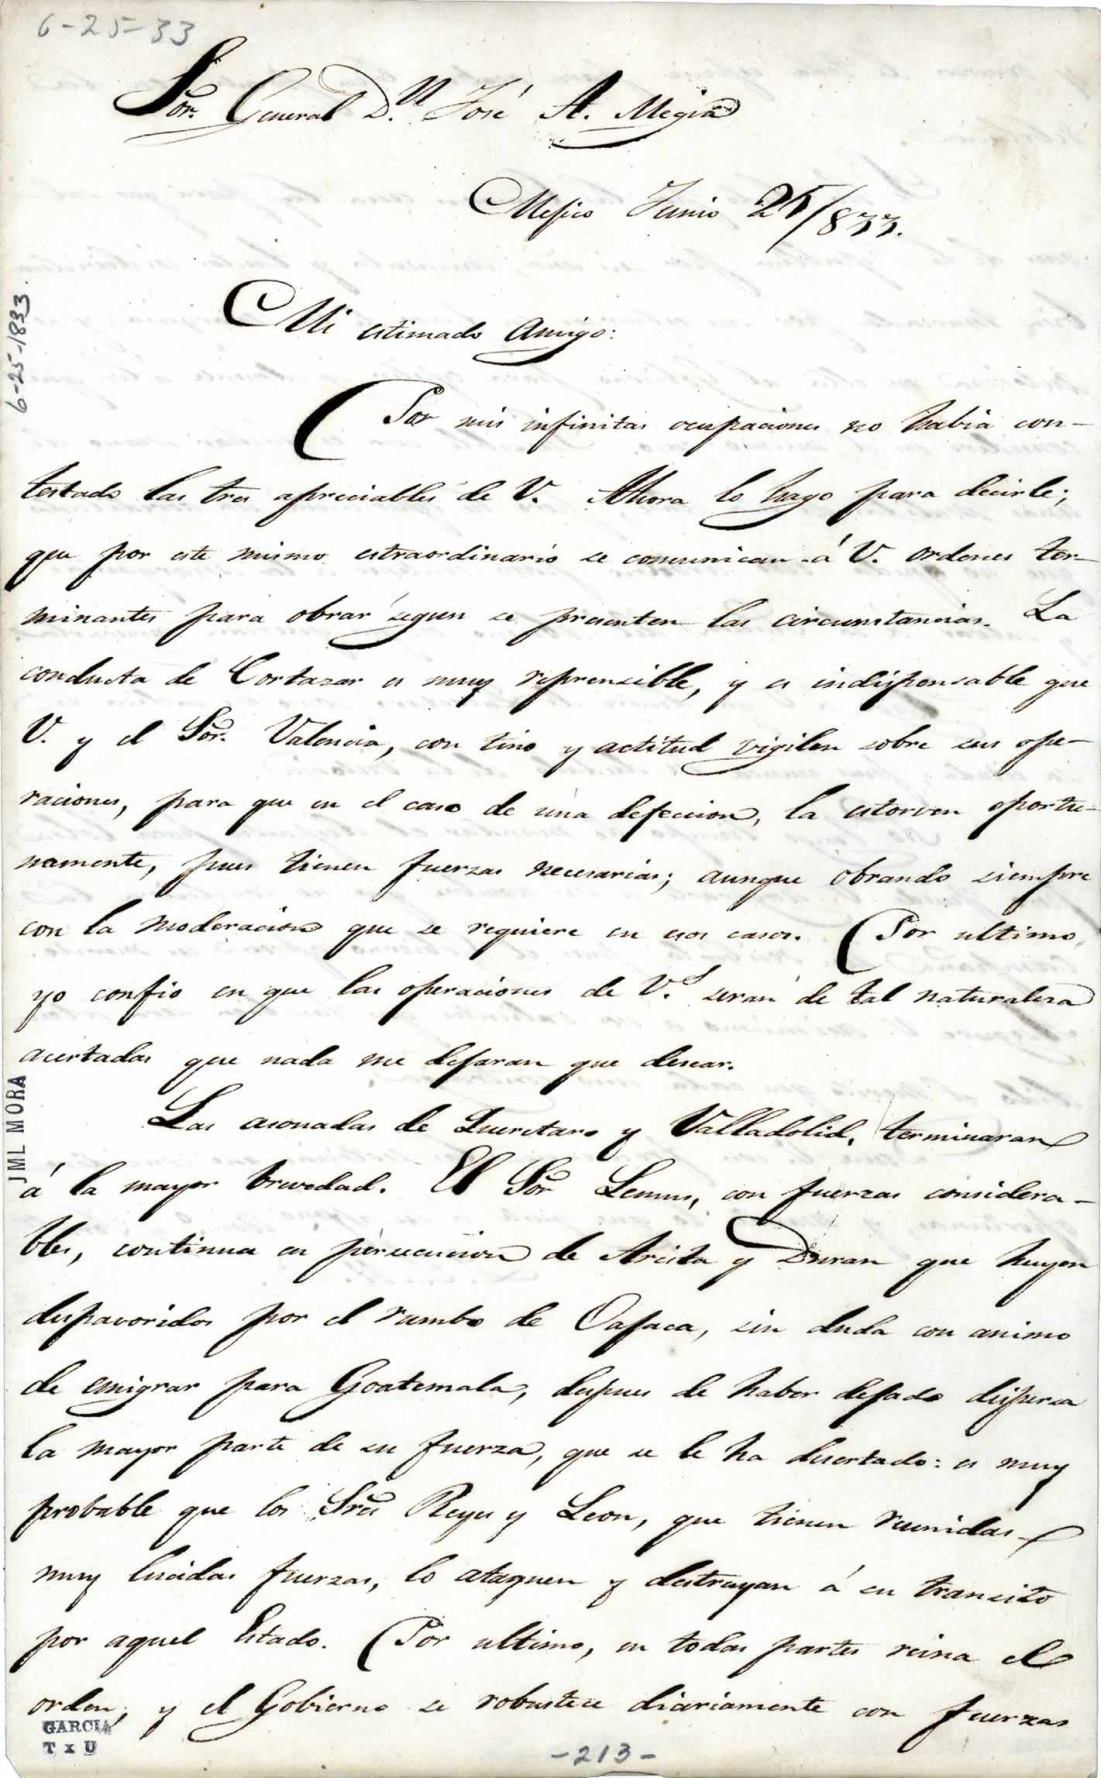 6-25-33
Sor. General Dn. José A. Megia
Mejico Junio 25/833.
Mi estimado Amigo:
6-25-1833
Por mis infinitas ocupaciones no habia con-
testado las tres apreciables de V. Ahora lo hago para decirle;
que por este mismo estraordinario se comunican á V. ordenes ter-
minantes para obrar segun se presenten las circunstancias. La
conducta de Cortazar es muy reprensible, y es indispensable que
V. y el Sor. Valencia, con tino y actitud vigilen sobre sus ope-
raciones, para que en el caso de una defeccion, la estorven oportu-
namente, pues tienen fuerzas necesarias; aunque obrando siempre
con la moderacion que se requiere en esos casos. Por ultimo,
yo confio en que las operaciones de V.s serán de tal naturaleza
acertadas que nada me dejaran que desear.
Las asonadas de Queretaro y Valladolid, terminaran
á la mayor brevedad. El Sor Lemus, con fuerzas considera-
bles, continua en persecucion de Arista y Duran que huyen
despavoridos por el rumbo de Oajaca, sin duda con animo
de emigrar para Goatemala, despues de haber dejado dispersa
la mayor parte de su fuerza, que se le ha desertado: es muy
probable que los Sres Reyes y Leon, que tienen reunidas
muy lucidas fuerzas, lo ataquen y destruyan á su transito
por aquel Estado. Por ultimo, en todas partes reina el
orden; y el Gobierno se robustece diariamente con fuerzas
JML MORA
GARCIA
T x U
-213-